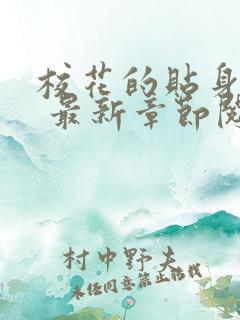 校花的貼身
最新章節閱
村中野夫
未经同意禁止转载